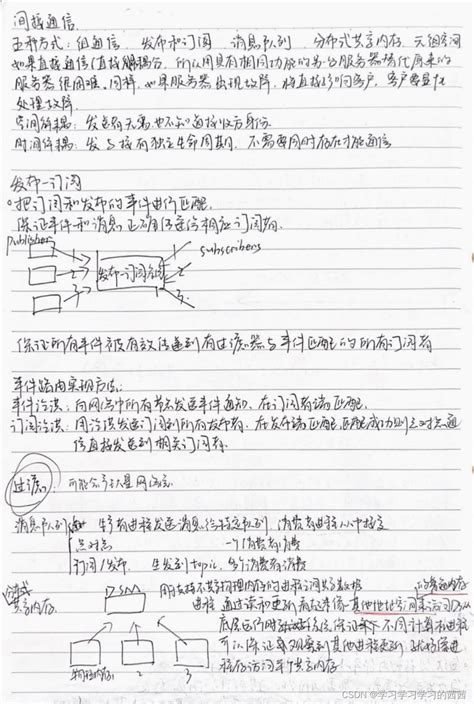 间接通信
五种方式：组通信、发布和订阅、消息队列、分布式共享内存、元组空间
如果直接通信(直接耦合)，所以用具有相同功能的另一台服务器替代原来的
服务器很困难。同样，如果服务器出现故障，将直接影响客户，客户要显式
处理故障。
空间解耦：发送者无需也不知道接收方身份
时间解耦：发与接有独立生命周期，不需要同时存在才能通信
发布-订阅
把订阅和发布的事件进行匹配
保证事件和消息正确传送给相应订阅者.
publishers
subscribers
发布-订阅系统
1
2
3
保证所有事件被有效传递到有过滤器与事件匹配的所有订阅者
事件路由实现方法：
事件泛洪：向网络中所有节点发送事件通知，在订阅者端匹配.
订阅泛洪：同泛洪发送订阅到所有发布者，在发布端匹配，匹配成功则点对点通
信直接发送到相关订阅者.
过滤：
消息队列
生产者进程发送消息给特定队列，消费者进程从中接收
点对点 一个消费者消费
订阅/发布. 生产者到topic，多个消费者消费
分布式
共享内存.
DSM
用于不共享物理内存的进程间共享数据
进程通过读和更新
底层运行时系统保证 不同计算机进程
可以保证每个观察到其他进程更新
物理内存1
2
3
CSDN @学习学习学习的茜茜